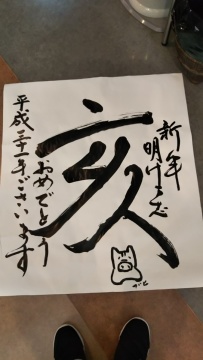 新年
明けまして
亥
おめでとう
ございます
平成三十一年